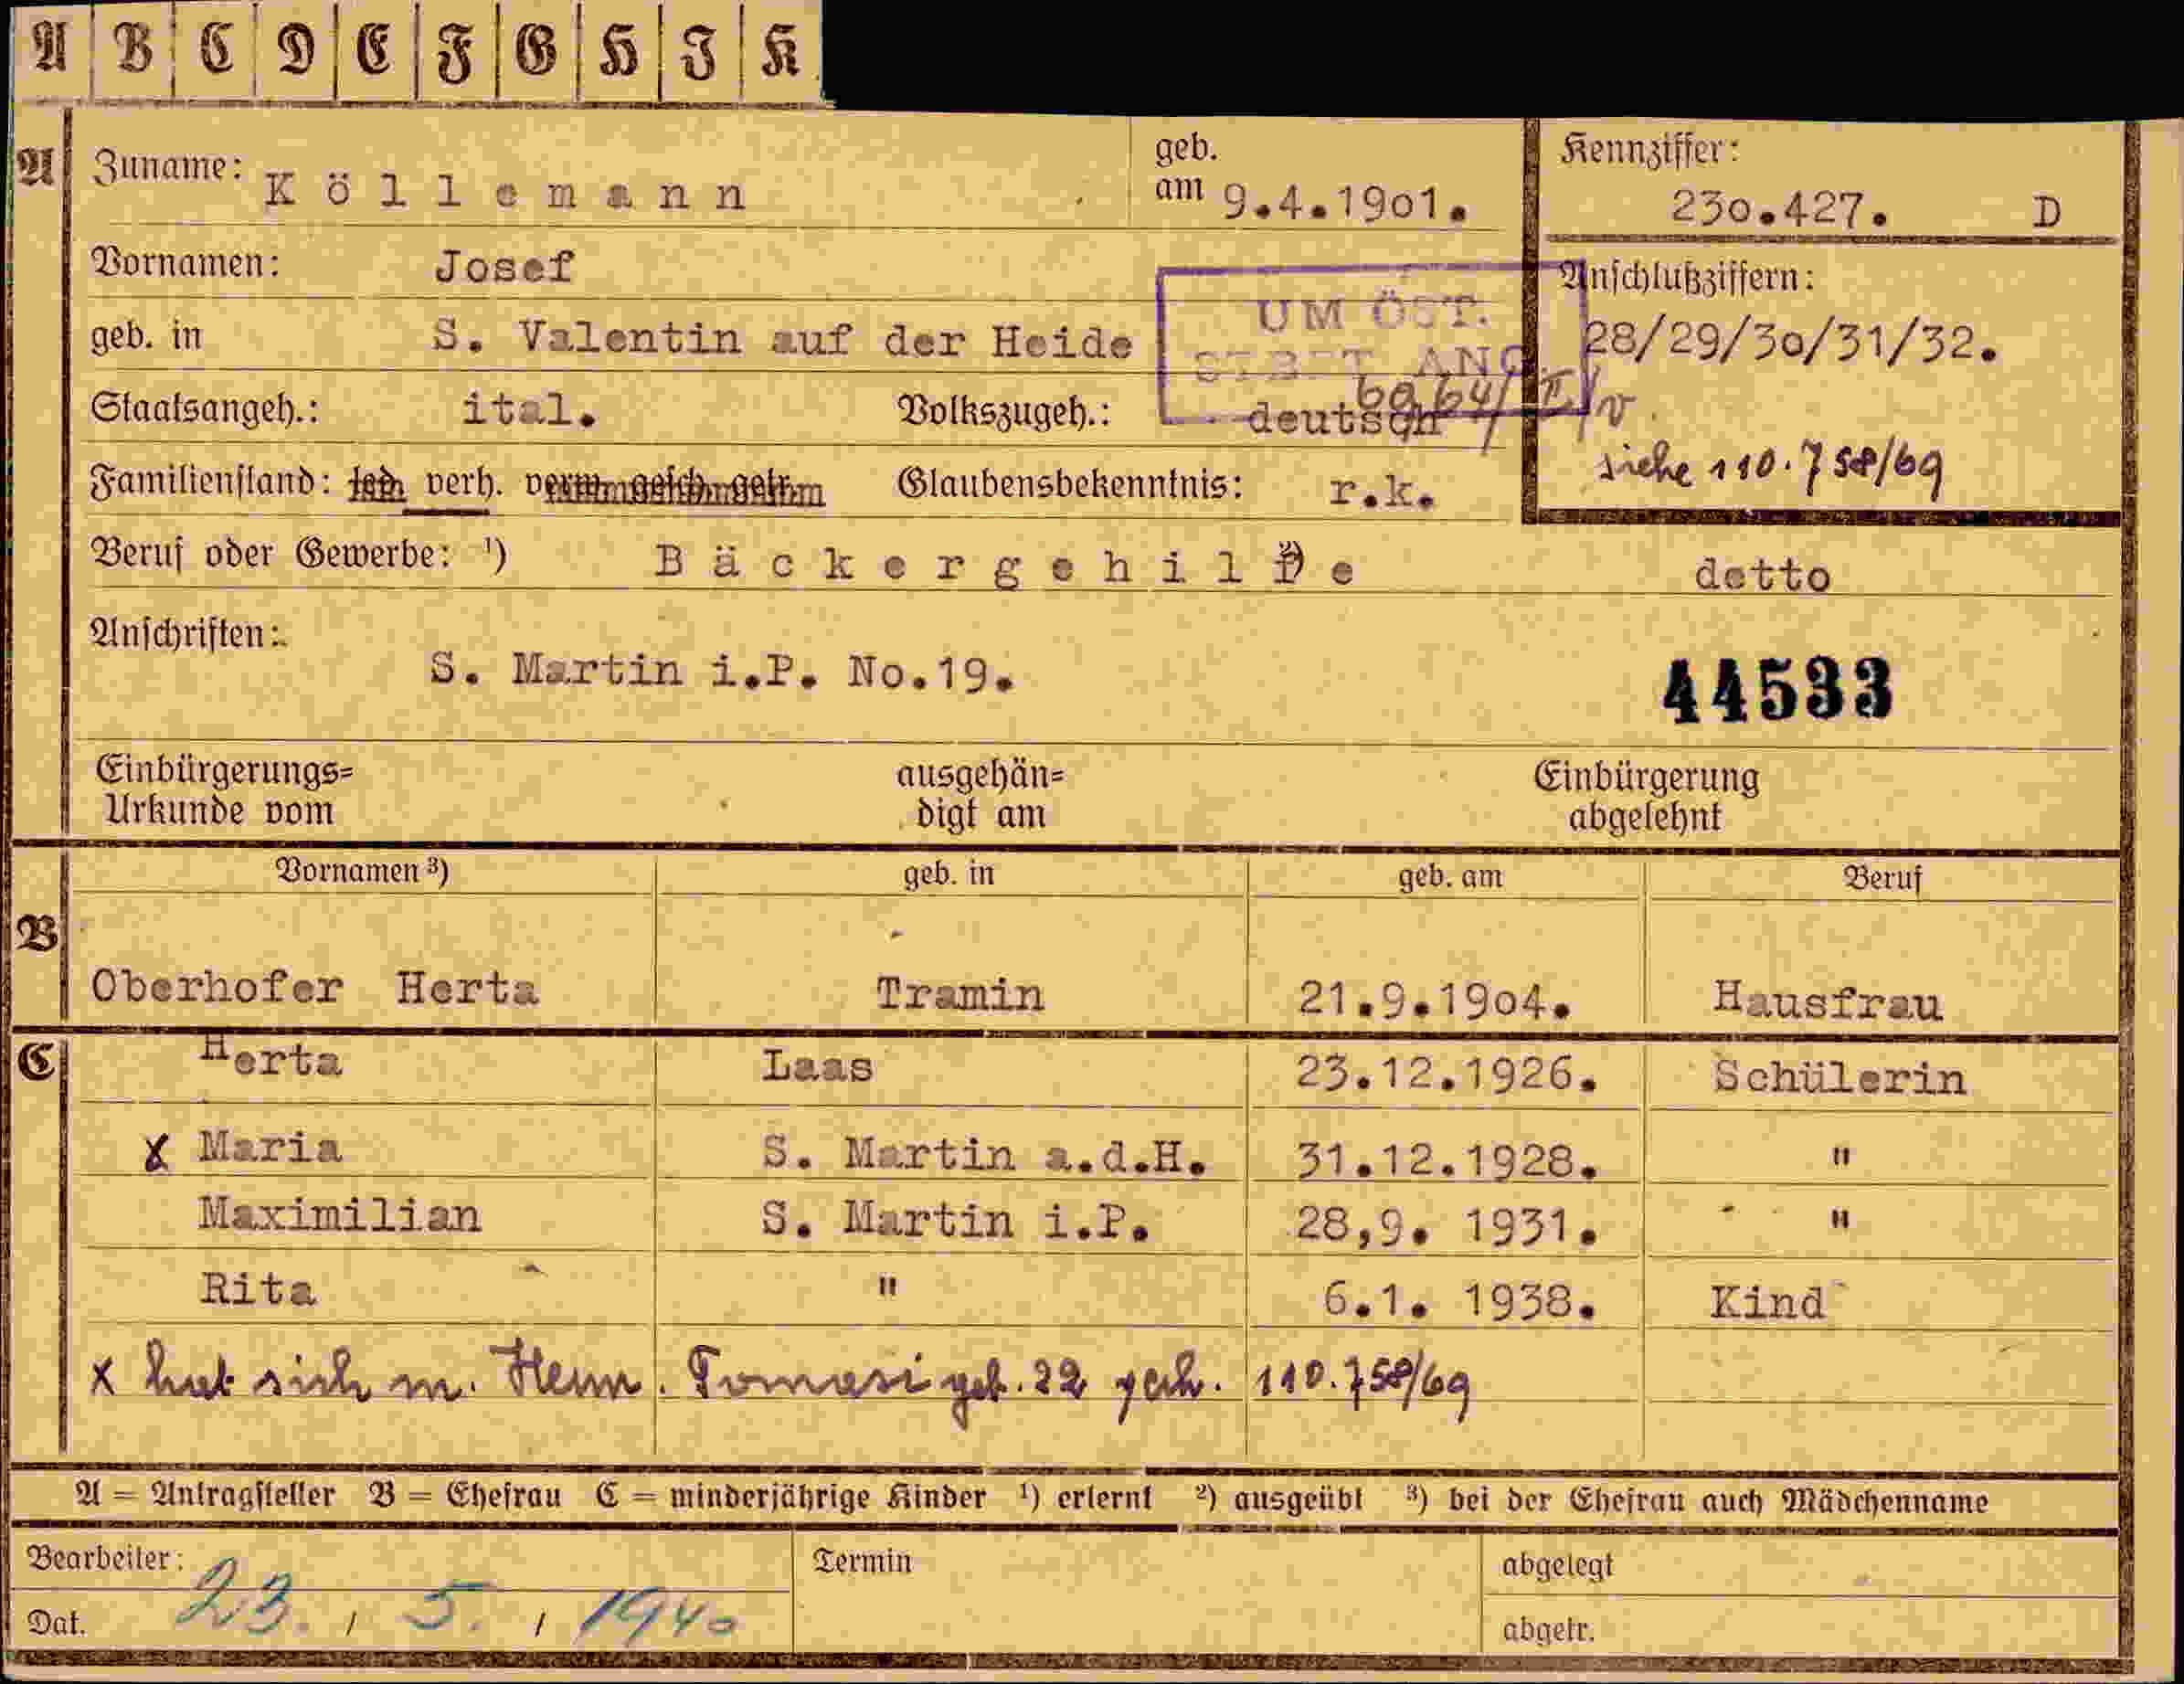 A B C D E F G H J K
A Zuname: Köllemann geb. am 9.4.1901. Kennziffer: 230.427. D
Vornamen: Josef Anschlußziffern:
UM ÖST.
geb. in S. Valentin auf der Heide 28/29/30/31/32.
Staatsangeh.: ital. Volkszugeh.: deutsch
siehe 110.758/69
Familienstand: led. verh. Glaubensbekenntnis: r.k.
Beruf oder Gewerbe: ¹) Bäckergehilfe ²) detto
Anschriften:
S. Martin i.P. No.19. 44533
Einbürgerungs= ausgehän= Einbürgerung
Urkunde vom digt am abgelehnt
Vornamen ³) geb. in geb. am Beruf
B
Oberhofer Herta Tramin 21.9.1904. Hausfrau
C Herta Laas 23.12.1926. Schülerin
x Maria S. Martin a.d.H. 31.12.1928. "
Maximilian S. Martin i.P. 28,9. 1931. "
Rita " 6.1. 1938. Kind
x hat sich m. Herm. Tomasi geb. 22 110.758/69
A = Antragsteller B = Ehefrau C = minderjährige Kinder ¹) erlernt ²) ausgeübt ³) bei der Ehefrau auch Mädchenname
Bearbeiter: Termin abgelegt
Dat. 23. / 5. / 1940 abgetr.